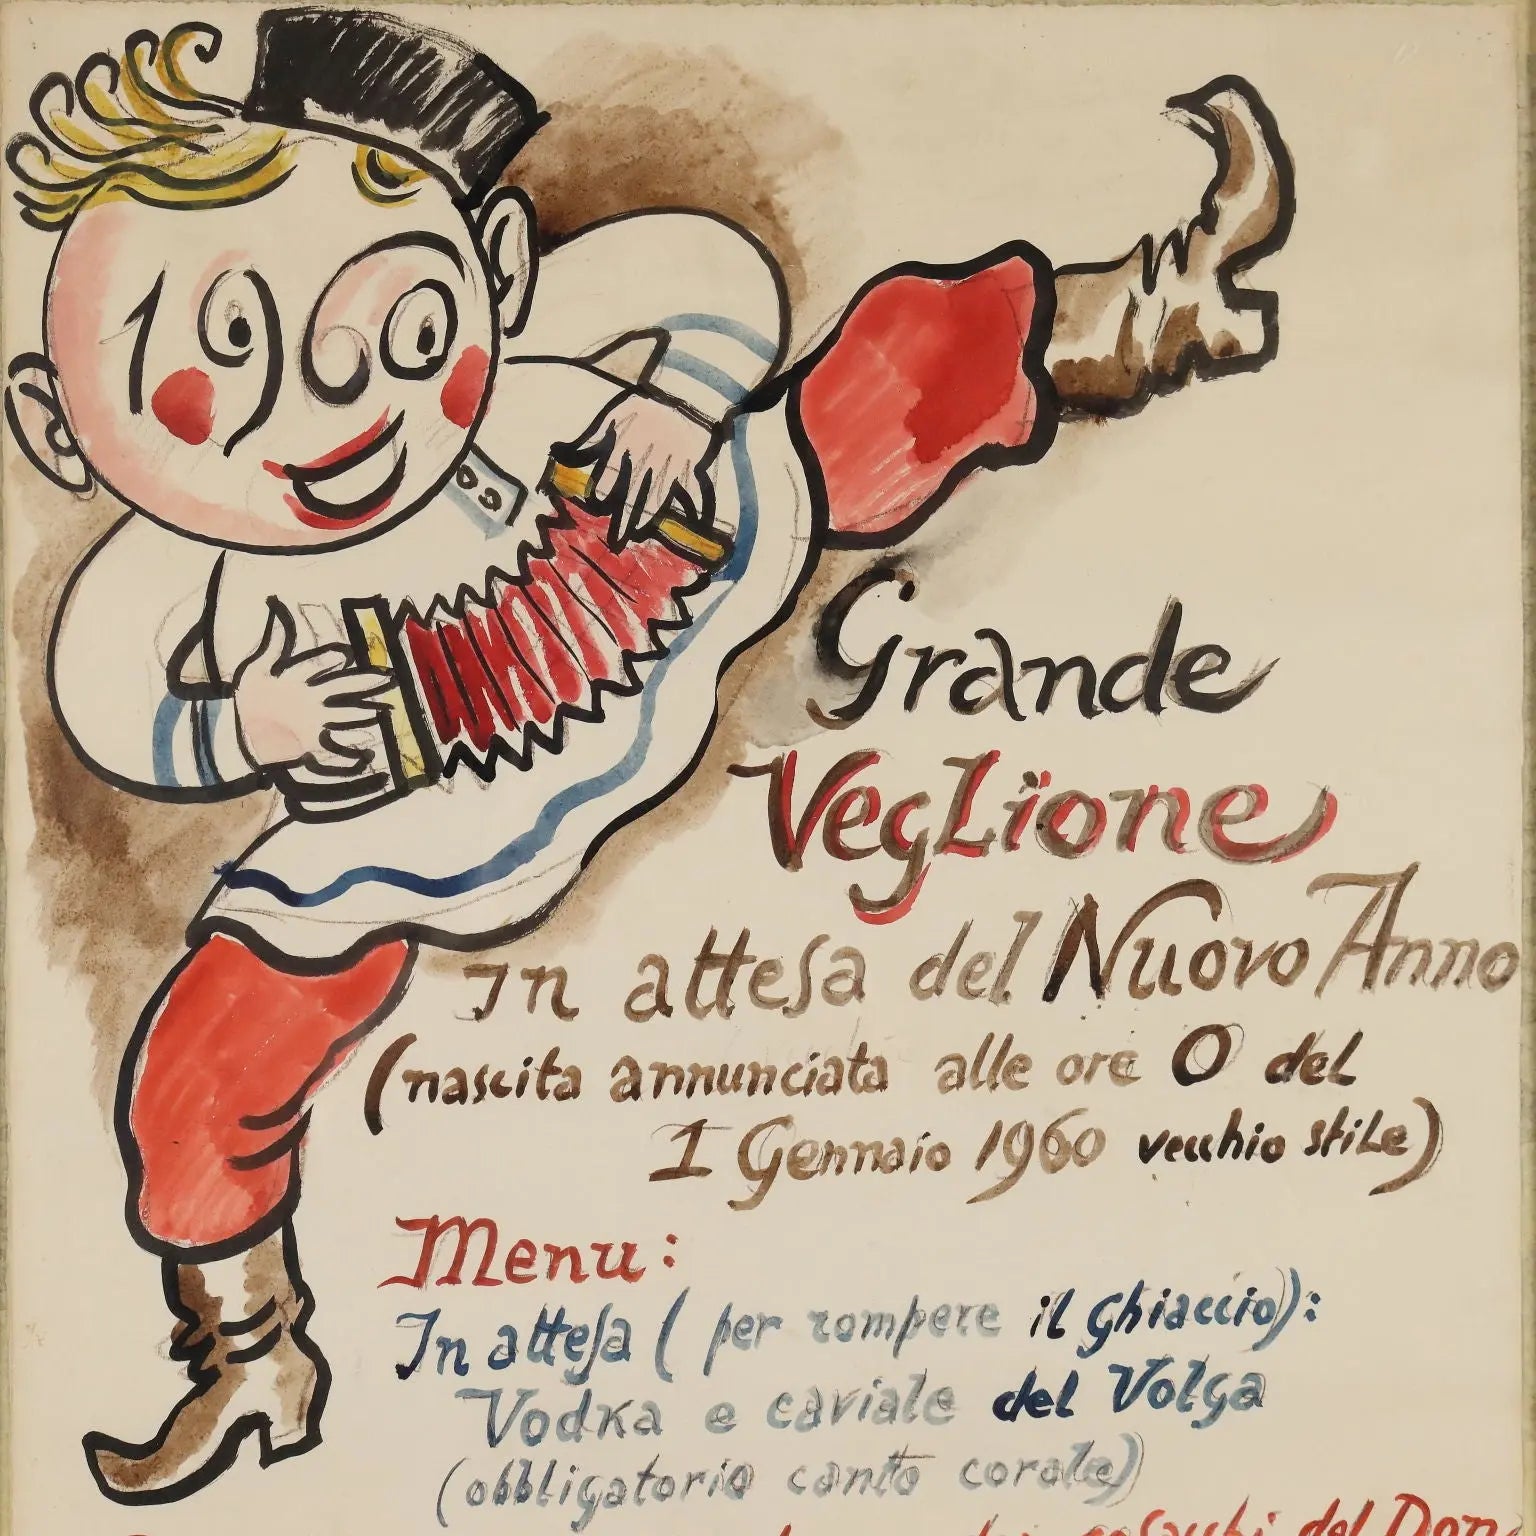 1960
Grande
Veglione
In attesa del Nuovo Anno
(nascita annunciata alle ore 0 del
1 Gennaio 1960 vecchio stile)
Menu:
In attesa (per rompere il ghiaccio):
Vodka e caviale del Volga
(obbligatorio canto corale)
cosacchi del Don